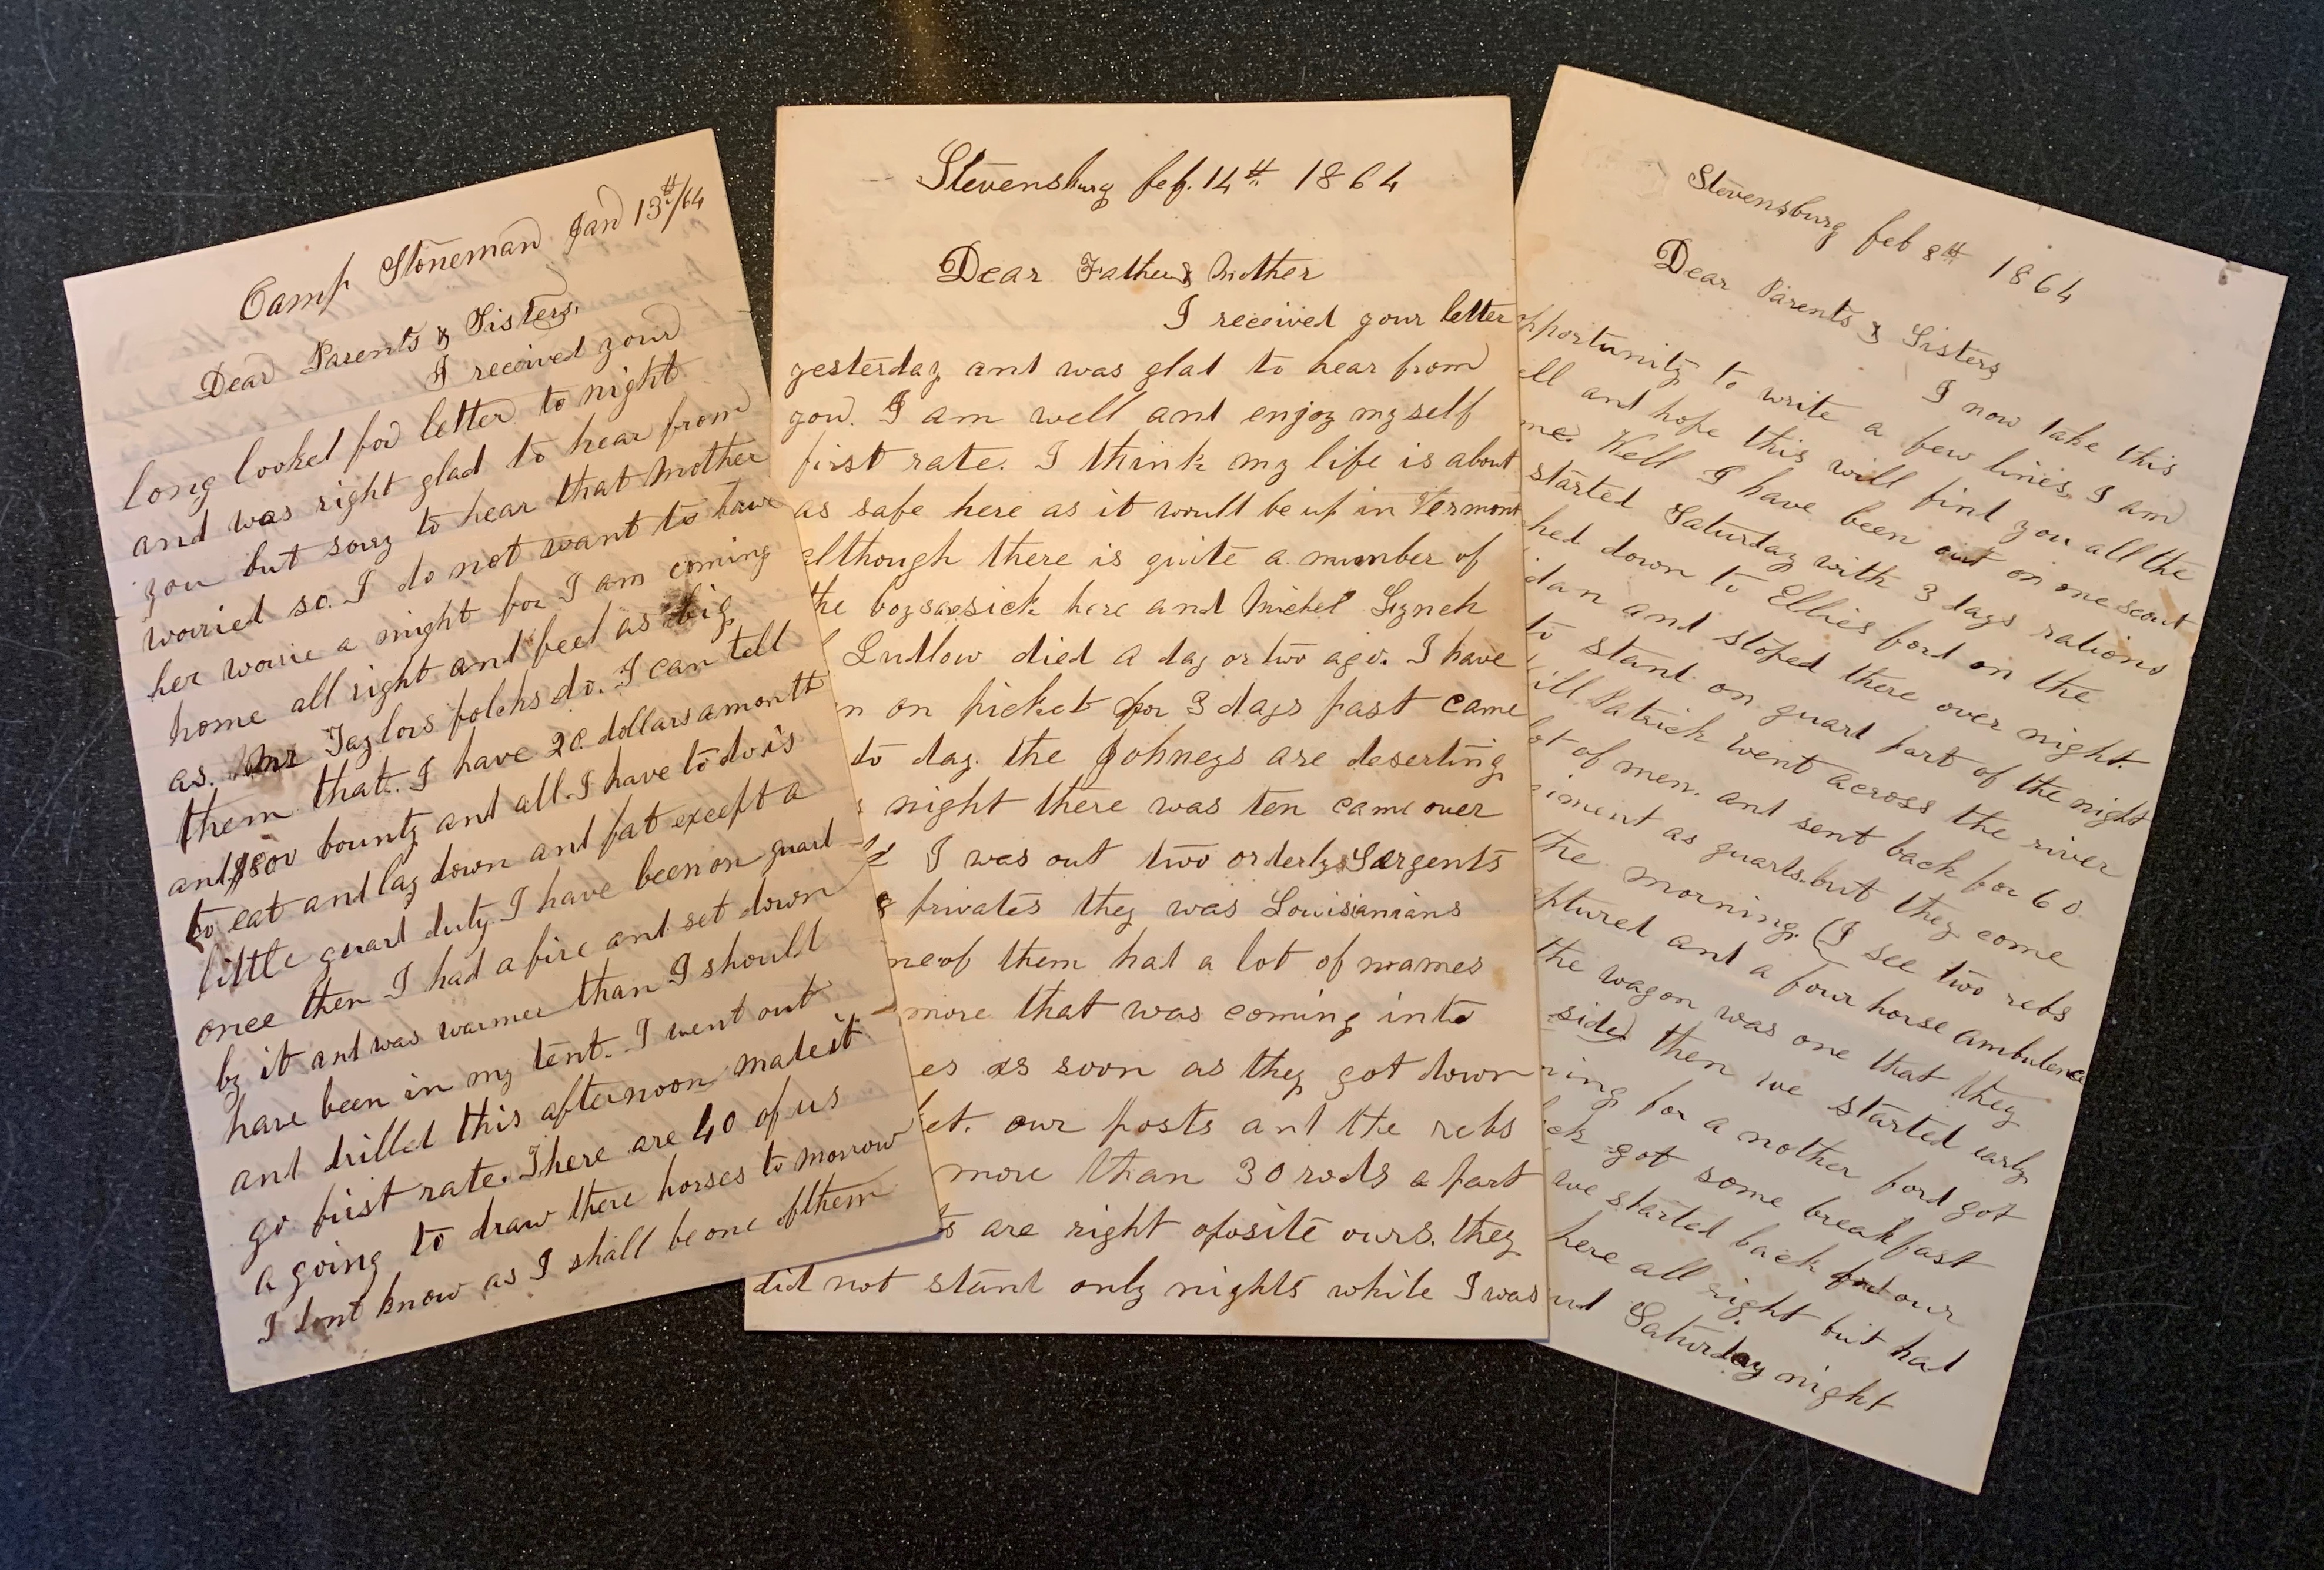 Camp Stoneman Jan 13th/64
Dear Parents & Sisters,
I received your
long looked for letter to night
and was right glad to hear from
you but sorry to hear that Mother
worried so. I do not want to have
her worrie a might for I am coming
home all right and feel as big
as Mr Taylors folchs do. I can tell
them that. I have 20 dollars a month
and bounty and all I have to do is
to eat and lay down and fat except a
little guard duty. I have been on guard
once then I had a fire and set down
by it and was warmer than I should
have been in my tent. I went out
and drilled this afternoon made it
go first rate. There are 40 of us
a going to draw there horses to morrow
I dont know as I shall be one of them
Stevensburg feb. 14th 1864
Dear Father & Mother
I received your letter
yesterday and was glad to hear from
you. I am well and enjoy myself
first rate. I think my life is about
as safe here as it would be up in Vermont
although there is quite a number of
the boys are sick here and Michel Lynch
Ludlow died a day or two ago. I have
on picket for 3 days past came
to day. the Johneys are deserting
night there was ten came over
I was out two orderly Sargents
& privates they was Louisianians
of them had a lot of names
more that was coming into
as soon as they got down
our posts and the rebs
more than 30 rods a part
are right oposite ours. they
did not stand only nights while I was
Stevensburg feb 8th 1864
Dear Parents & Sisters
I now take this
opportunity to write a few lines. I am
and hope this will find you all the
Well I have been out on one scout
started Saturday with 3 days rations
down to Ellies ford on the
and stoped there over night.
to stand on guard part of the night
Patrick went across the river
of men. and sent back for 60
as guards. but they come
the morning. (I see two rebs
and a four horse ambulence
the wagon was one that they
side) then we started early
for a nother ford got
got some breakfast
we started back for our
here all right but had
Saturday night